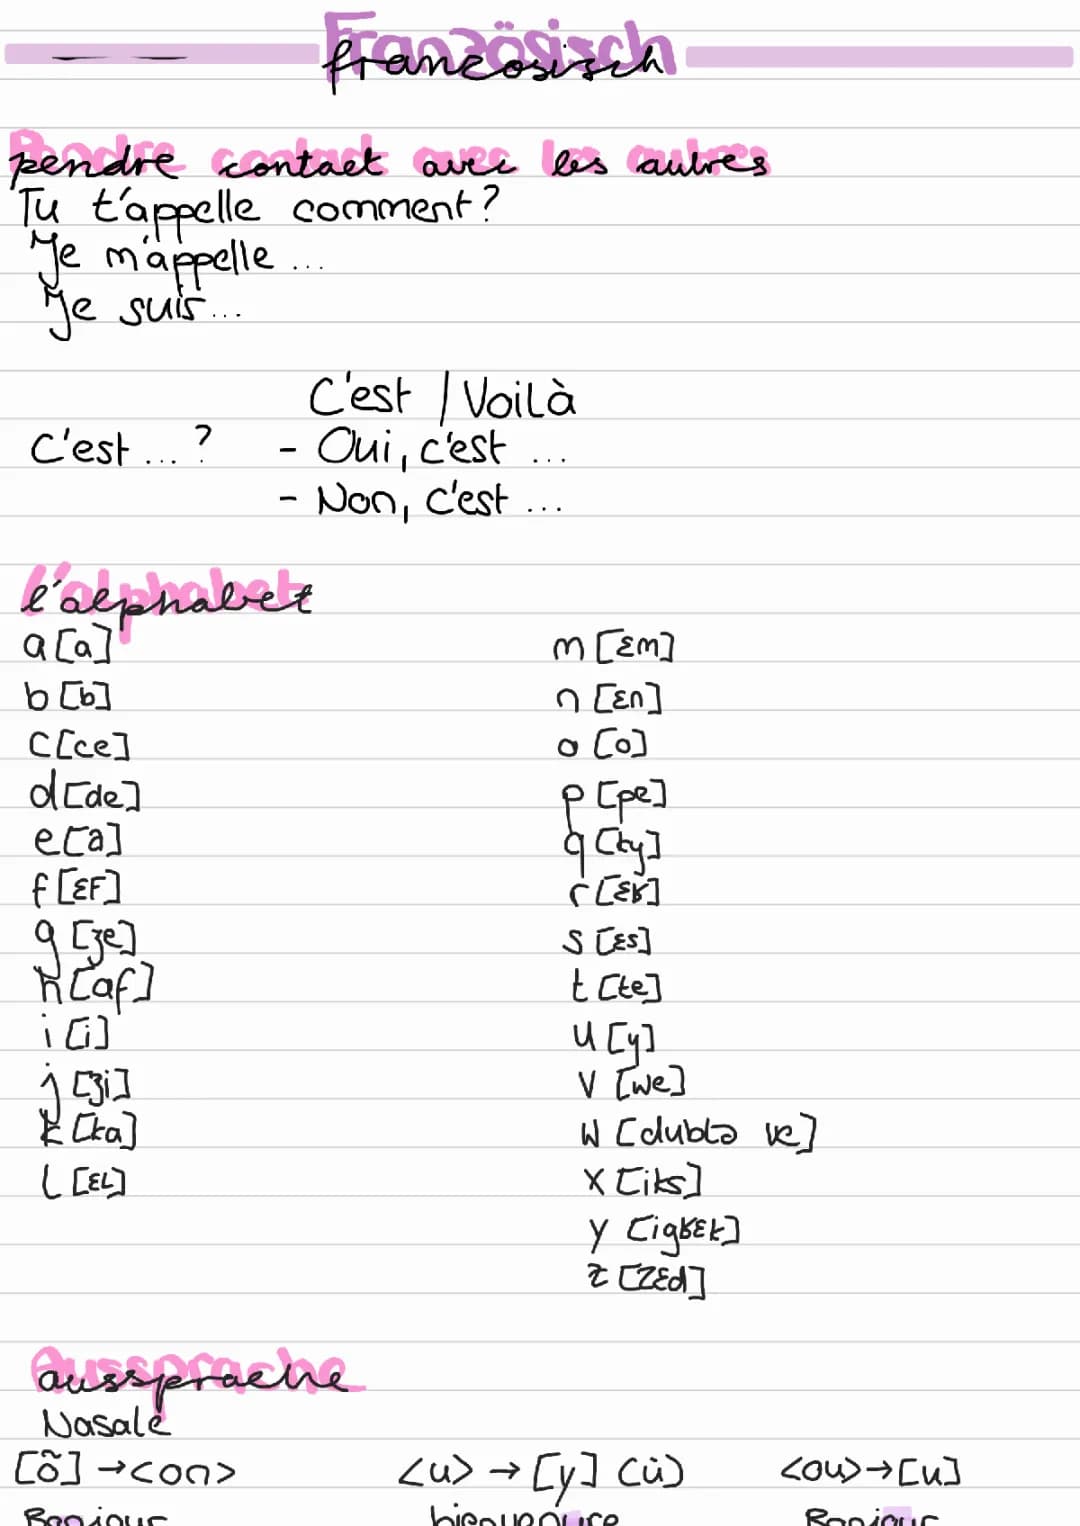 Französisch
Pendre contact avec les autres
Tu t'appelle comment?
Je m'appelle ...
Je suis...
C'est / Voilà
C'est ... ? - Oui, c'est ...
- Non, c'est ...
l'alphabet
a [a] m [εm]
b [b] n [εn]
c [ce] o [o]
d [de] p [pe]
e [a] q [ky]
f [εF] r [εʁ]
g [ʒe] s [εs]
h [af] t [te]
i [i] u [y]
j [ʒi] v [we]
k [ka] w [dublə ve]
l [εL] x [iks]
y [igʁεk]
z [zεd]
Aussprache
Nasale
[õ] → <on> <u> → [y] (ü) <ou> → [u]
Bonjour bienvenüre Bonjour